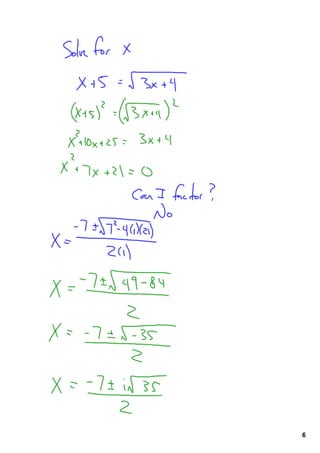 Solve for x
x+5 = √3x+4
(x+5)² = (√3x+4)²
x²+10x+25 = 3x+4
x²+7x+21 = 0
Can I factor?
No
x = -7 ± √7²-4(1)(21) / 2(1)
x = -7 ± √49-84 / 2
x = -7 ± √-35 / 2
x = -7 ± i√35 / 2
6